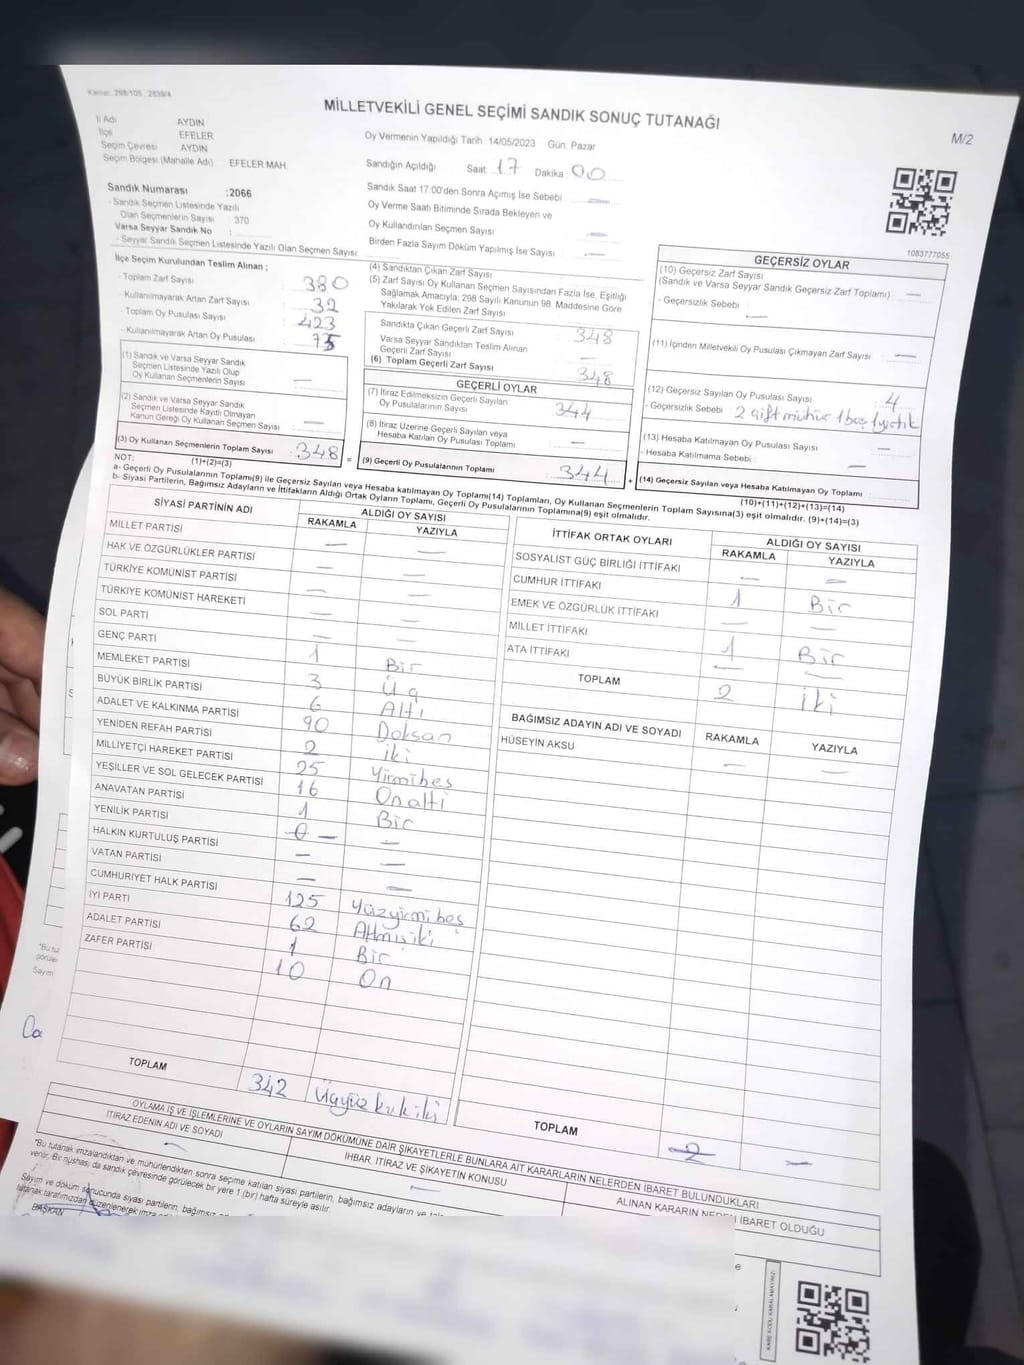 Kanun: 298/105, 2839/4
MİLLETVEKİLİ GENEL SEÇİMİ SANDIK SONUÇ TUTANAĞI
M/2
İl Adı AYDIN
İlçe EFELER
Seçim Çevresi AYDIN
Seçim Bölgesi (Mahalle Adı) EFELER MAH.
Oy Vermenin Yapıldığı Tarih :14/05/2023 Gün. Pazar
Sandığın Açıldığı Saat 17 Dakika 00
Sandık Saat 17:00'den Sonra Açımış İse Sebebi —
Oy Verme Saati Bitiminde Sırada Bekleyen ve
Oy Kullandırılan Seçmen Sayısı —
Birden Fazla Sayım Döküm Yapılmış İse Sayısı —
Sandık Numarası :2066
- Sandık Seçmen Listesinde Yazılı
Olan Seçmenlerin Sayısı : 370
Varsa Seyyar Sandık No :
- Seyyar Sandık Seçmen Listesinde Yazılı Olan Seçmen Sayısı :
1083777055
İlçe Seçim Kurulundan Teslim Alınan ;
- Toplam Zarf Sayısı : 380
- Kullanılmayarak Artan Zarf Sayısı : 32
- Toplam Oy Pusulası Sayısı : 423
- Kullanılmayarak Artan Oy Pusulası : 75
(1) Sandık ve Varsa Seyyar Sandık
Seçmen Listesinde Yazılı Olup
Oy Kullanan Seçmenlerin Sayısı —
(2) Sandık ve Varsa Seyyar Sandık
Seçmen Listesinde Kayıtlı Olmayan
Kanun Gereği Oy Kullanan Seçmen Sayısı —
(3) Oy Kullanan Seçmenlerin Toplam Sayısı : 348
(1)+(2)=(3)
(4) Sandıktan Çıkan Zarf Sayısı
(5) Zarf Sayısı Oy Kullanan Seçmen Sayısından Fazla İse, Eşitliği
Sağlamak Amacıyla; 298 Sayılı Kanunun 98. Maddesine Göre
Yakılarak Yok Edilen Zarf Sayısı
Sandıkta Çıkan Geçerli Zarf Sayısı : 348
Varsa Seyyar Sandıktan Teslim Alınan
Geçerli Zarf Sayısı —
(6) Toplam Geçerli Zarf Sayısı : 348
GEÇERLİ OYLAR
(7) İtiraz Edilmeksizin Geçerli Sayılan
Oy Pusulalarının Sayısı : 344
(8) İtiraz Üzerine Geçerli Sayılan veya
Hesaba Katılan Oy Pusulası Toplamı —
= (9) Geçerli Oy Pusulalarının Toplamı : 344
GEÇERSİZ OYLAR
(10) Geçersiz Zarf Sayısı
(Sandık ve Varsa Seyyar Sandık Geçersiz Zarf Toplamı) —
- Geçersizlik Sebebi : —
(11) İçinden Milletvekili Oy Pusulası Çıkmayan Zarf Sayısı —
(12) Geçersiz Sayılan Oy Pusulası Sayısı : 4
- Geçersizlik Sebebi : 2 çift mühür 1 boş 1 yırtık
(13) Hesaba Katılmayan Oy Pusulası Sayısı —
- Hesaba Katılmama Sebebi : —
+ (14) Geçersiz Sayılan veya Hesaba Katılmayan Oy Toplamı
(10)+(11)+(12)+(13)=(14)
NOT:
a- Geçerli Oy Pusulalarının Toplamı(9) ile Geçersiz Sayılan veya Hesaba katılmayan Oy Toplamı(14) Toplamları, Oy Kullanan Seçmenlerin Toplam Sayısına(3) eşit olmalıdır. (9)+(14)=(3)
b- Siyasi Partilerin, Bağımsız Adayların ve İttifakların Aldığı Ortak Oyların Toplamı, Geçerli Oy Pusulalarının Toplamına(9) eşit olmalıdır.
SİYASİ PARTİNİN ADI ALDIĞI OY SAYISI
RAKAMLA YAZIYLA
MİLLET PARTİSİ — —
HAK VE ÖZGÜRLÜKLER PARTİSİ — —
TÜRKİYE KOMÜNİST PARTİSİ — —
TÜRKİYE KOMÜNİST HAREKETİ — —
SOL PARTİ — —
GENÇ PARTİ 1 Bir
MEMLEKET PARTİSİ 3 Üç
BÜYÜK BİRLİK PARTİSİ 6 Altı
ADALET VE KALKINMA PARTİSİ 90 Doksan
YENİDEN REFAH PARTİSİ 2 iki
MİLLİYETÇİ HAREKET PARTİSİ 25 Yirmibeş
YEŞİLLER VE SOL GELECEK PARTİSİ 16 Onaltı
ANAVATAN PARTİSİ 1 Bir
YENİLİK PARTİSİ 0 — —
HALKIN KURTULUŞ PARTİSİ — —
VATAN PARTİSİ — —
CUMHURİYET HALK PARTİSİ 125 Yüzyirmibeş
İYİ PARTİ 62 Atmışiki
ADALET PARTİSİ 1 Bir
ZAFER PARTİSİ 10 On
TOPLAM 342 Üçyüzkırkiki
İTTİFAK ORTAK OYLARI ALDIĞI OY SAYISI
RAKAMLA YAZIYLA
SOSYALİST GÜÇ BİRLİĞİ İTTİFAKI — —
CUMHUR İTTİFAKI 1 Bir
EMEK VE ÖZGÜRLÜK İTTİFAKI — —
MİLLET İTTİFAKI 1 Bir
ATA İTTİFAKI — —
TOPLAM 2 İki
BAĞIMSIZ ADAYIN ADI VE SOYADI RAKAMLA YAZIYLA
HÜSEYİN AKSU — —
TOPLAM 2 —
OYLAMA İŞ VE İŞLEMLERİNE VE OYLARIN SAYIM DÖKÜMÜNE DAİR ŞİKAYETLERLE BUNLARA AİT KARARLARIN NELERDEN İBARET BULUNDUKLARI
İTİRAZ EDENİN ADI VE SOYADI
İHBAR, İTİRAZ VE ŞİKAYETİN KONUSU
ALINAN KARARIN İBARET OLDUĞU
"Bu tutanak imzalandıktan ve mühürlendikten sonra seçime katılan siyasi partilerin, bağımsız adayların ve
verilir. Bir nüshası da sandık çevresinde görülecek bir yere 1 (bir) hafta süreyle asılır.
Sayım ve döküm sonucunda siyasi partilerin, bağımsız
tutanak tarafımızdan düzenlenerek imza
BAŞKAN